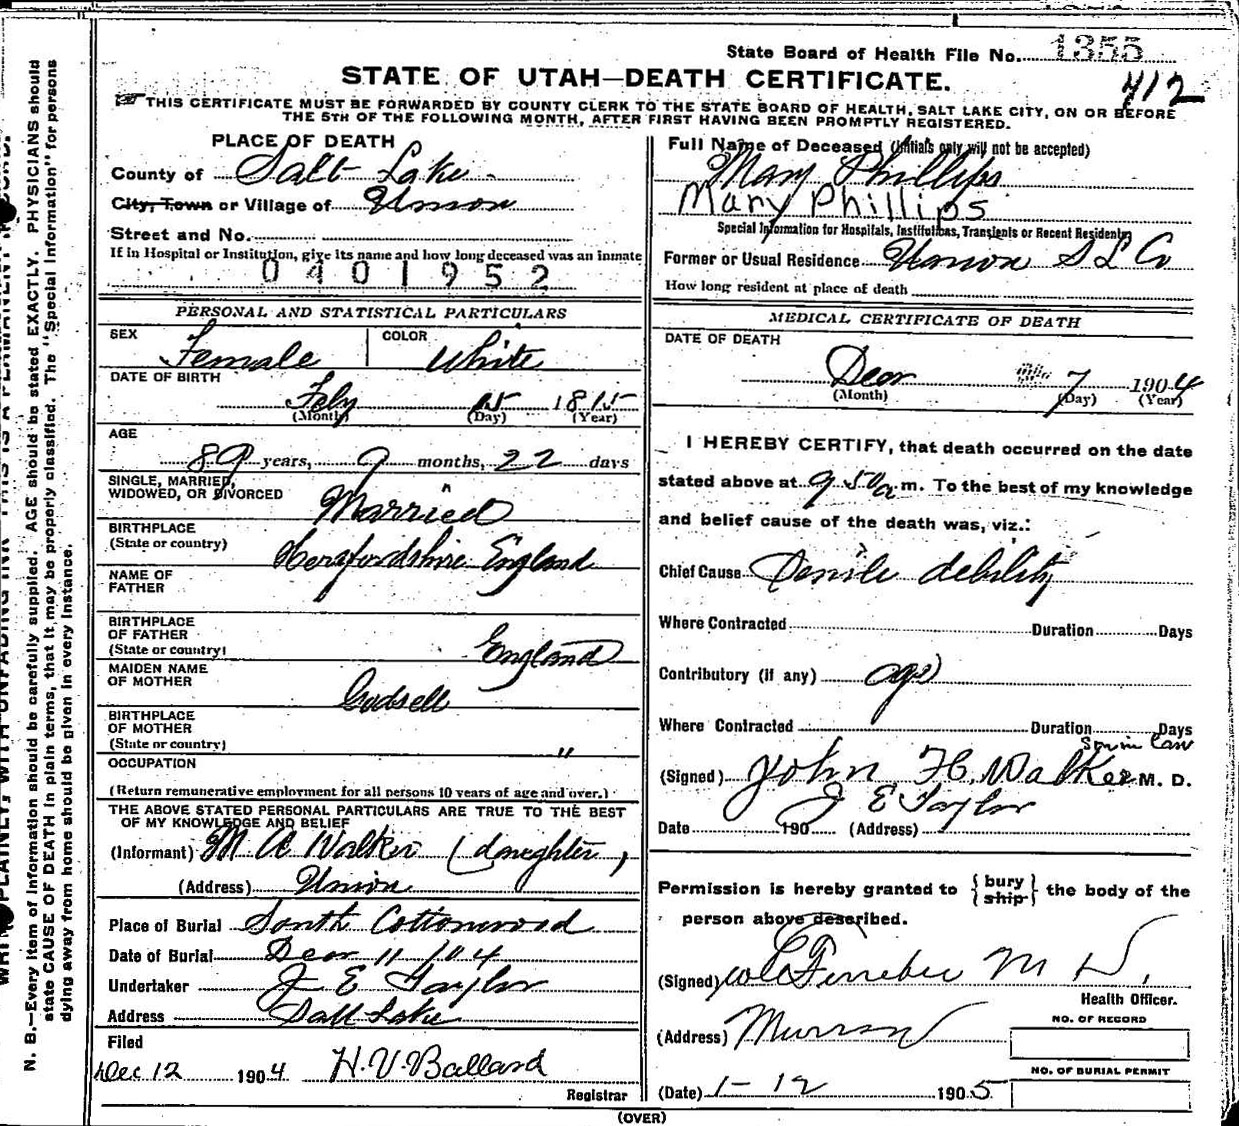 State Board of Health File No. 1355
412
STATE OF UTAH—DEATH CERTIFICATE.
THIS CERTIFICATE MUST BE FORWARDED BY COUNTY CLERK TO THE STATE BOARD OF HEALTH, SALT LAKE CITY, ON OR BEFORE
THE 5TH OF THE FOLLOWING MONTH, AFTER FIRST HAVING BEEN PROMPTLY REGISTERED.
PLACE OF DEATH
County of Salt Lake
City, Town or Village of Union
Street and No.
If in Hospital or Institution, give its name and how long deceased was an inmate
0401952
Full Name of Deceased (Initials only will not be accepted)
Mary Phillips
Mary Phillips
Special Information for Hospitals, Institutions, Transients or Recent Residents
Former or Usual Residence Union S L Co
How long resident at place of death
PERSONAL AND STATISTICAL PARTICULARS
SEX Female
COLOR White
DATE OF BIRTH
Feby 15 1815
(Month) (Day) (Year)
AGE
89 years, 9 months, 22 days
SINGLE, MARRIED,
WIDOWED, OR DIVORCED Married
BIRTHPLACE
(State or country) Herefordshire England
NAME OF
FATHER
BIRTHPLACE
OF FATHER
(State or country) England
MAIDEN NAME
OF MOTHER Godsell
BIRTHPLACE
OF MOTHER
(State or country) "
OCCUPATION
(Return remunerative employment for all persons 10 years of age and over.)
THE ABOVE STATED PERSONAL PARTICULARS ARE TRUE TO THE BEST
OF MY KNOWLEDGE AND BELIEF
(Informant) M A Walker (daughter)
(Address) Union
Place of Burial South Cottonwood
Date of Burial Decr 11/04
Undertaker J E Taylor
Address Salt Lake
Filed
Dec 12 1904 H. V. Ballard
Registrar
MEDICAL CERTIFICATE OF DEATH
DATE OF DEATH
Decr 7 1904
(Month) (Day) (Year)
I HEREBY CERTIFY, that death occurred on the date
stated above at 9 50 a m. To the best of my knowledge
and belief cause of the death was, viz.:
Chief Cause Senile debility
Where Contracted Duration Days
Contributory (if any) age
Where Contracted Duration Days
Son in Law
(Signed) John H. Walker M. D.
J E Taylor
Date 190 (Address)
Permission is hereby granted to {bury ship} the body of the
person above described.
(Signed) Ferrebee M D,
Health Officer.
(Address) Murray
NO. OF RECORD
NO. OF BURIAL PERMIT
(Date) 1-12 1905
(OVER)
N. B.—Every item of information should be carefully supplied. AGE should be stated EXACTLY. PHYSICIANS should
state CAUSE OF DEATH in plain terms, that it may be properly classified. The "Special Information" for persons
dying away from home should be given in every instance.